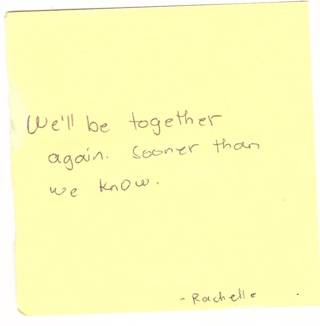 We'll be together
again. Sooner than
we know.
- Rachelle